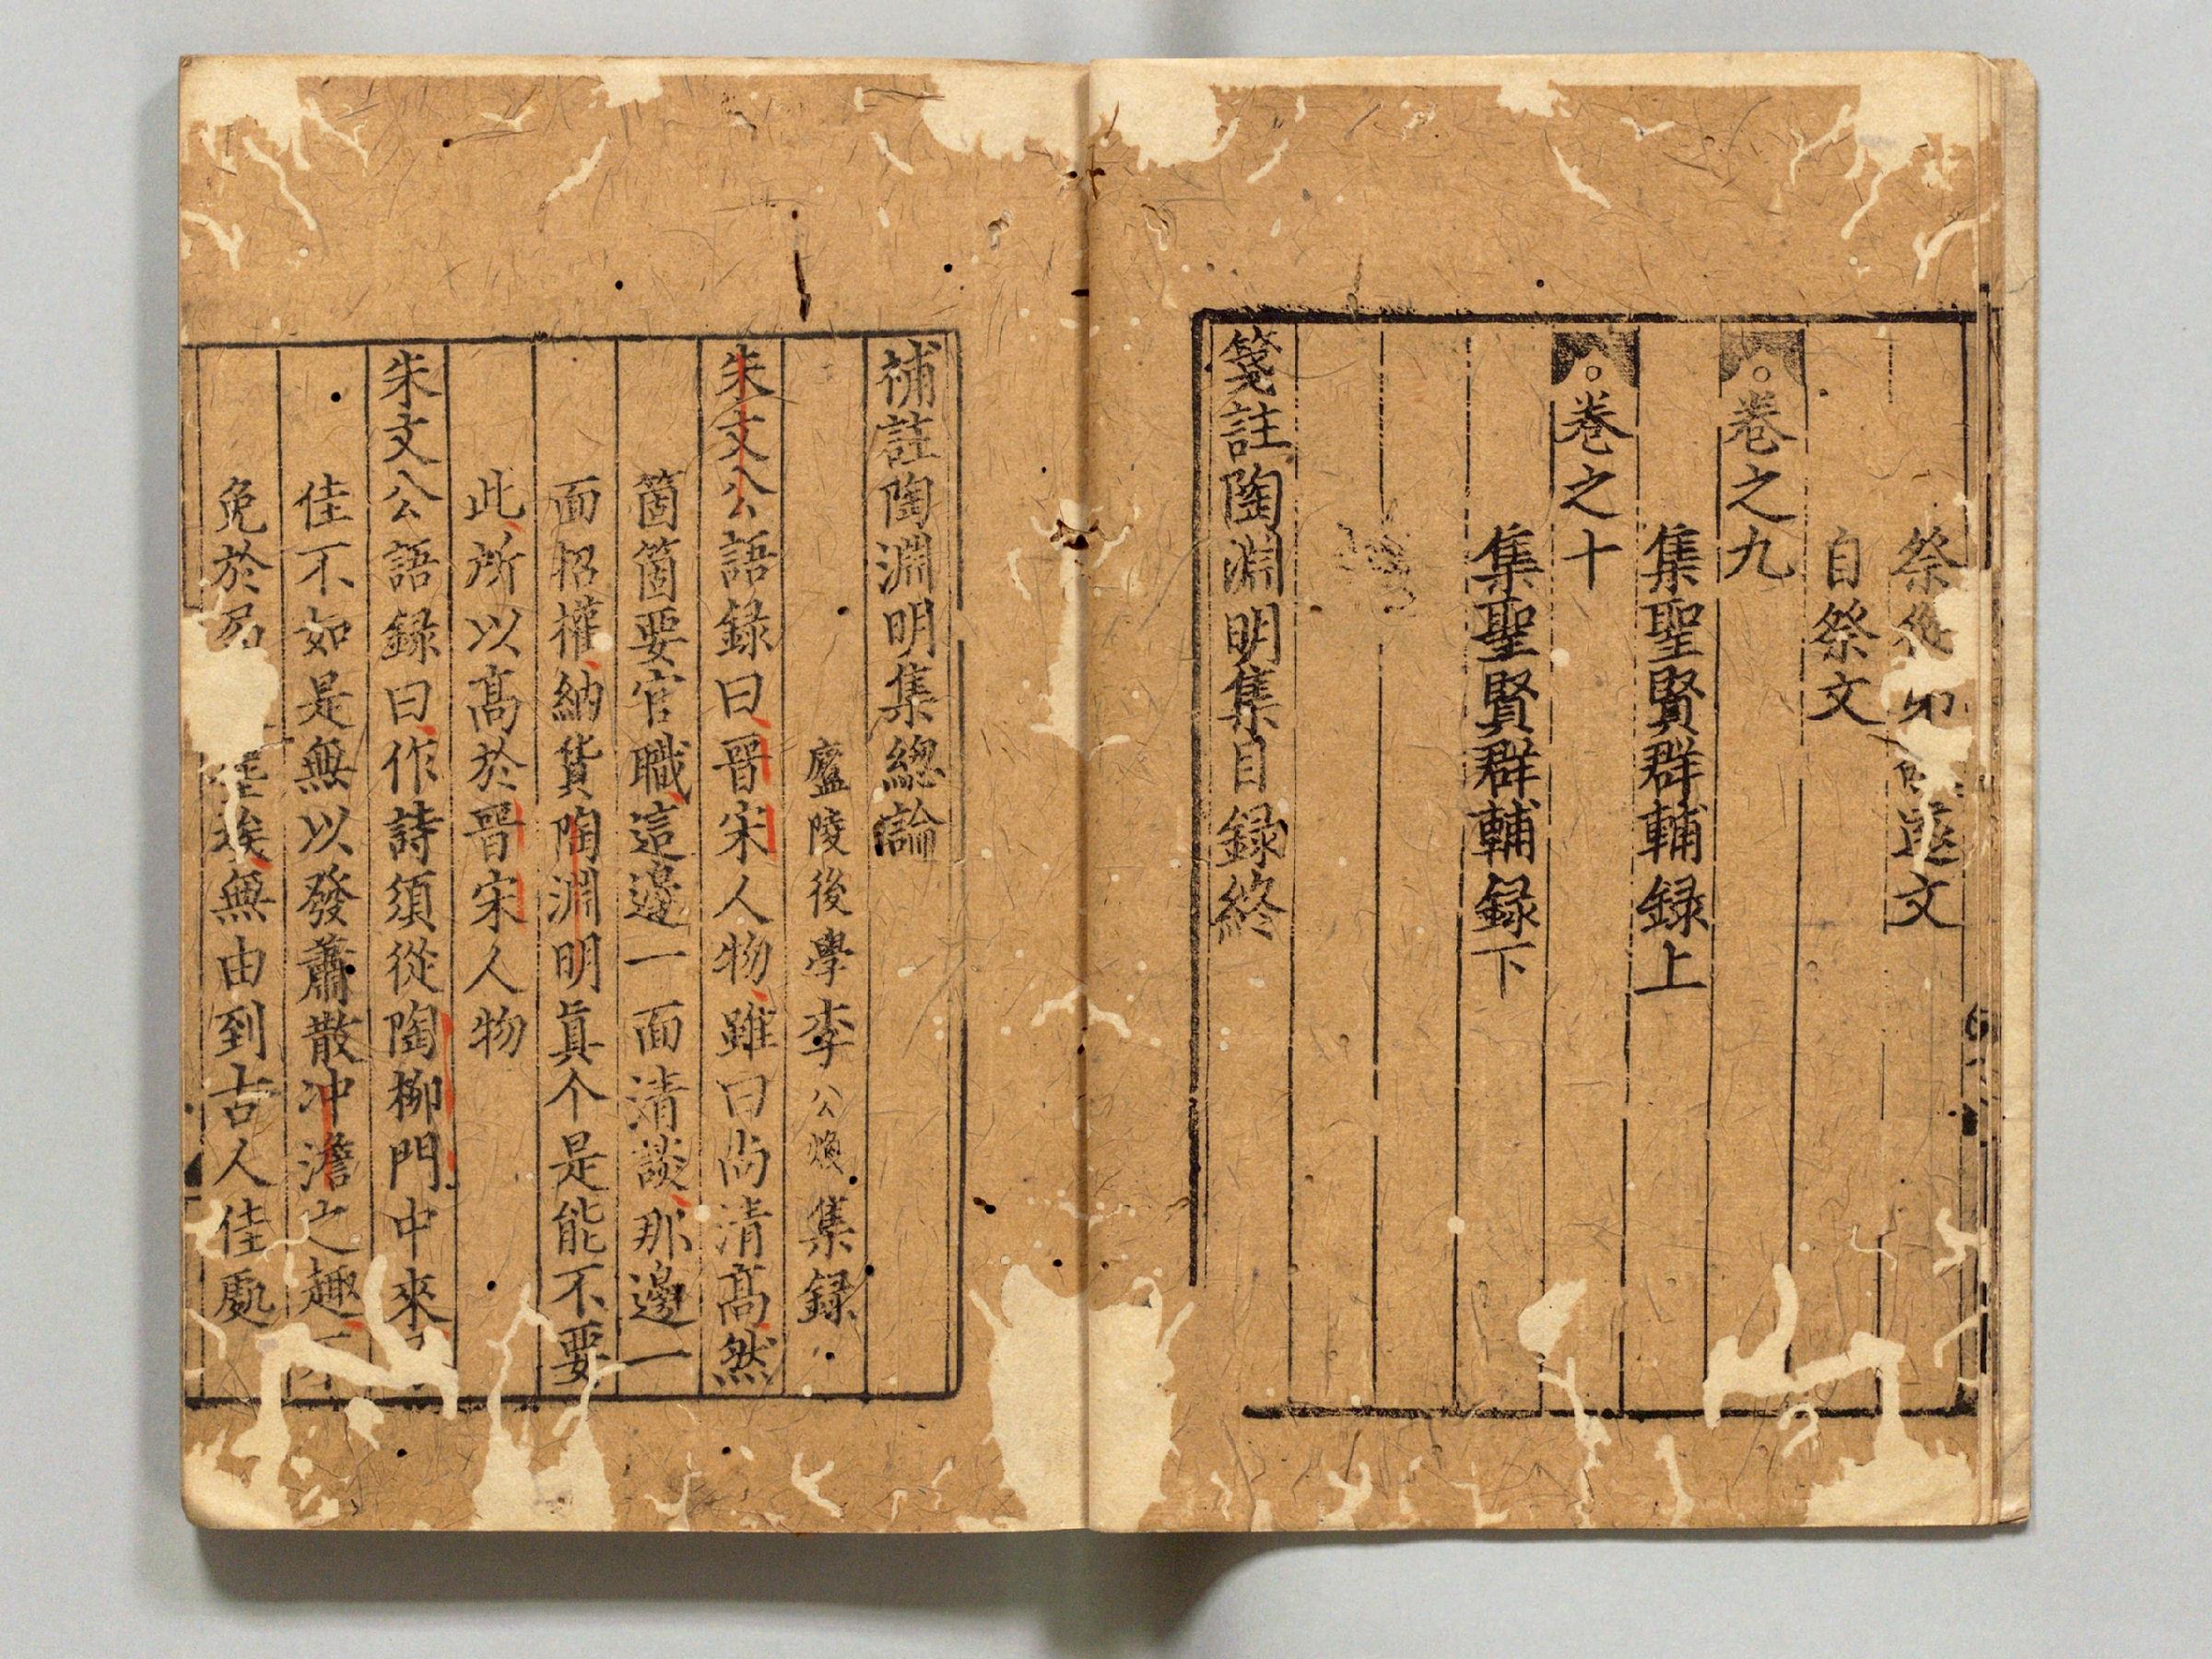 祭從
文
自祭文
卷之九
集聖賢群輔録上
卷之十
集聖賢群輔録下
箋註陶淵明集目録終
補註陶淵明集總論
廬陵後學李公煥集録
朱文公語録曰晉宋人物雖曰尚清髙然
箇箇要官職這邊一面清談那邊一
面招權納貨陶淵明眞个是能不要
此所以髙於晉宋人物
朱文公語録曰作詩須從陶柳門中來
佳不如是無以發蕭散冲澹之趣
免於局埃無由到古人佳處